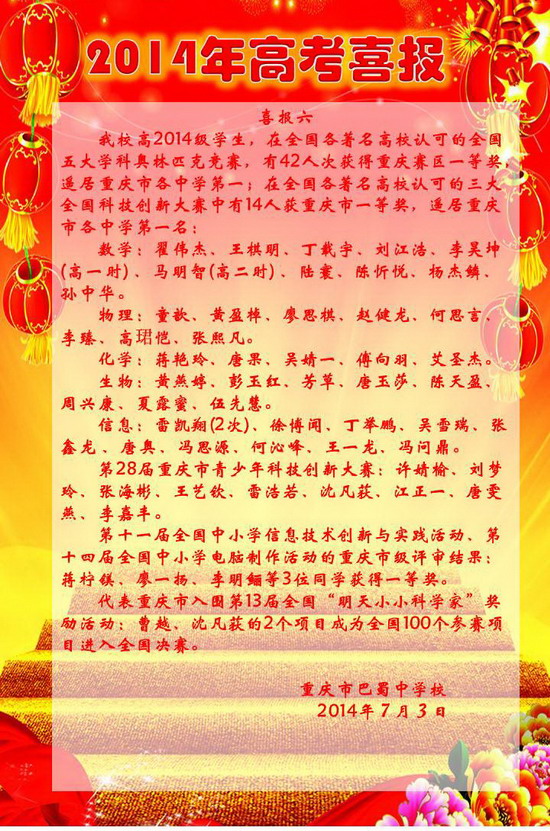 2014年高考喜报
喜报六
我校高2014级学生，在全国各著名高校认可的全国
五大学科奥林匹克竞赛，有42人次获得重庆赛区一等奖，
遥居重庆市各中学第一；在全国各著名高校认可的三大
全国科技创新大赛中有14人获重庆市一等奖，遥居重庆
市各中学第一名：
数学：翟伟杰、王棋明、丁载宇、刘江浩、李昊坤
(高一时)、马明智(高二时)、陆寰、陈忻悦、杨杰鳞、
孙中华。
物理：童歆、黄盈椁、廖思棋、赵健龙、何思言、
李臻、高珺恺、张熙凡。
化学：蒋艳玲、唐果、吴婧一、傅向羽、艾圣杰。
生物：黄燕婷、彭玉红、芳草、唐玉莎、陈天盈、
周兴康、夏露蜜、伍先慧。
信息：雷凯翔(2次)、徐博闻、丁举鹏、吴雷瑞、张
鑫龙、唐奥、冯思源、何沁峰、王一龙、冯问鼎。
第28届重庆市青少年科技创新大赛：许婧榆、刘梦
玲、张海彬、王艺钦、雷浩若、沈凡荻、江正一、唐雯
燕、李嘉丰。
第十一届全国中小学信息技术创新与实践活动、第
十四届全国中小学电脑制作活动的重庆市级评审结果：
蒋柠镁、廖一扬、李明 等3位同学获得一等奖。
代表重庆市入围第13届全国“明天小小科学家”奖
励活动：曹越、沈凡荻的2个项目成为全国100个参赛项
目进入全国决赛。
重庆市巴蜀中学校
2014年7月3日